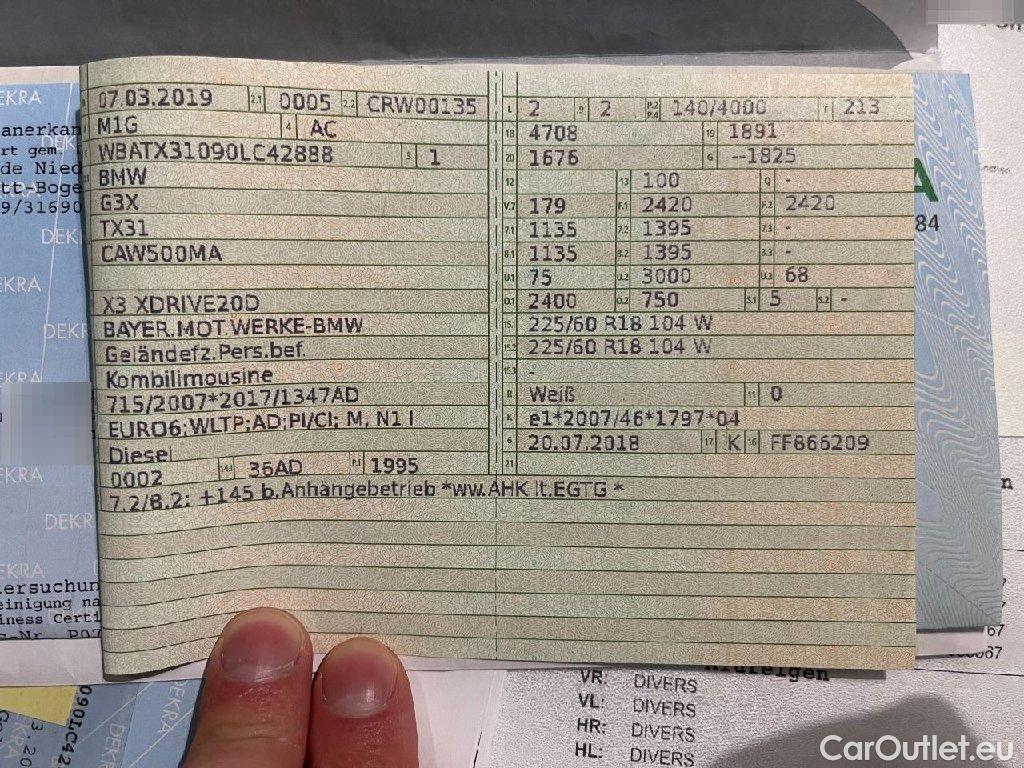 07.03.2019 2.1 0005 2.2 CRW00135
M1G 4 AC
WBATX31090LC42888 3 1
BMW
G3X
TX31
CAW500MA
X3 XDRIVE20D
BAYER.MOT.WERKE-BMW
Geländefz.Pers.bef.
Kombilimousine
715/2007*2017/1347AD
EURO6;WLTP;AD;PI/CI; M, N1 I
Diesel
0002 14.1 36AD P.1 1995
7.2/8.2: +145 b.Anhängebetrieb *ww.AHK lt.EGTG *
L 2 9 2 P.2 P.4 140/4000 T 213
18 4708 19 1891
20 1676 G --1825
12 13 100 Q -
V.7 179 F.1 2420 F.2 2420
7.1 1135 7.2 1395 7.3 -
8.1 1135 8.2 1395 8.3 -
U.1 75 U.2 3000 U.3 68
O.1 2400 O.2 750 S.1 5 S.2 -
15.1 225/60 R18 104 W
15.2 225/60 R18 104 W
15.3 -
R Weiß 11 0
K e1*2007/46*1797*04
6 20.07.2018 17 K 16 FF866209
21
EKRA
anerkan
rt gem.
de Nied
tt-Boge
9/31690
DEKR
DEKRA
A
84
ersuchun
einigung na
iness Certi
67
VR: DIVERS
VL: DIVERS
HR: DIVERS
HL: DIVERS
090LC42
DEKRA
CarOutlet.eu